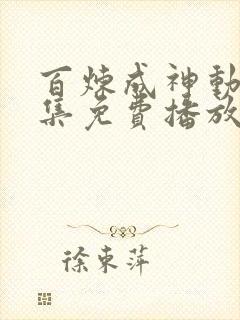 百炼成神动
集免费播放
徐東萍